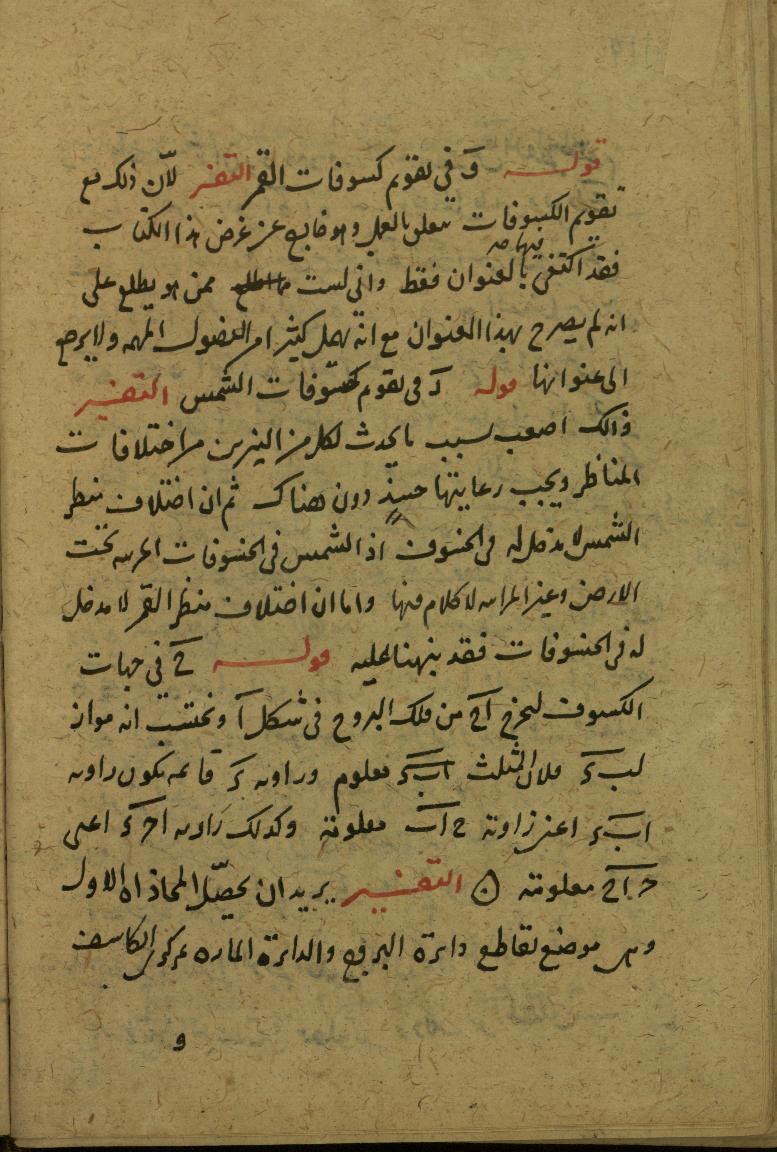 قوله وَ في تقويم كسوفات القمر التفسير لأن ذلك مع
تقويم الكسوفات يتعلق بالعمل وهو خارج عن غرض هذا الكتاب
فقد اكتفى فيها بالعنوان فقط واني لست ممن هو يطلع على
انه لم يصرح بهذا العنوان مع انه يهمل كثيرا من الفصول المهمه ولا يرجع
الى عنوانها قوله زَ في تقويم كسوفات الشمس التفسير
ذالك اصعب بسبب ما يحدث لكل من النيرين من اختلافات
المناظر ويجب رعايتها حينئذ دون هناك ثم ان اختلاف منظر
الشمس لا مدخل له في الخسوف اذ الشمس في الخسوفات المرئيه تحت
الارض وغير المرئيه لا كلام فيها واما ان اختلاف منظر القمر لا مدخل
له في الخسوفات فقد نبهنا عليه قوله حَ في جهات
الكسوف ليخرج آح من فلك البروج في شكل آ ونحتسب انه مواز
لب ءَ فلان المثلث اب ءَ معلوم وزاويه ءَ قائمه تكون زاويه
اب ءَ اعني زاوية ح اب معلومة وكذلك زاويه احـ ءَ اعني
حـ اح معلومة ۞ التفسير يريد ان يحصّل المحاذاه الاول
وهي موضع تقاطع دائرة البروج والدائرة الماره بمركزي الكاسف
و